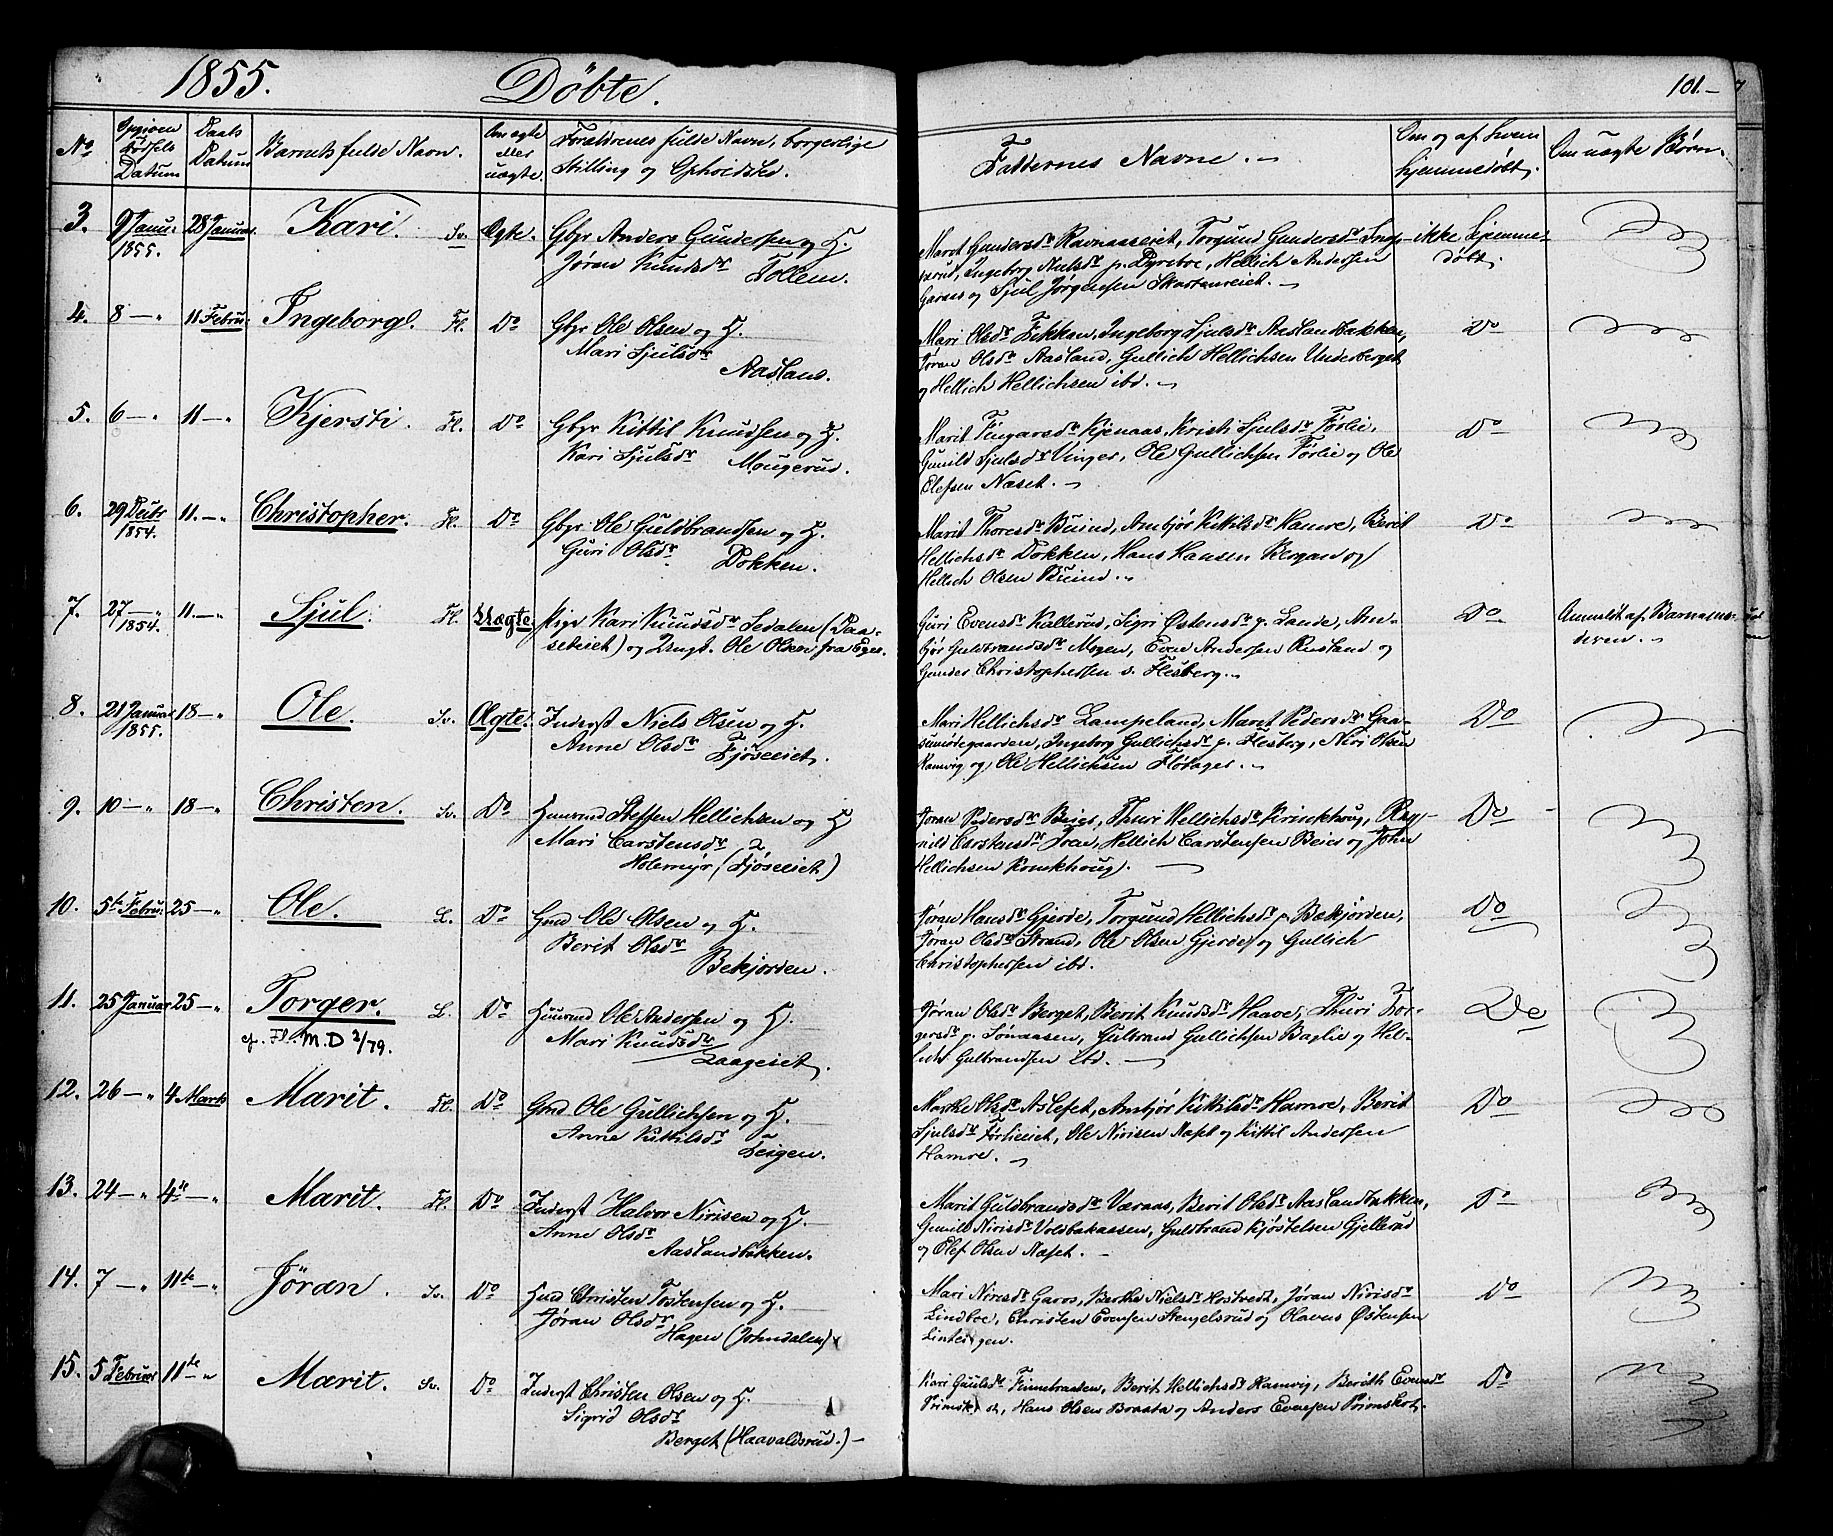 1855. Döbte. 101.-
No
Opgiven Fødsels Datum
Daabs Datum
Barnets fulde Navn.
Om ægte eller uægte.
Forældrenes fulde Navn, borgerlige Stilling og Opholdsted.
Faddernes Navne.-
Om og af hvem hjemmedöbt.
Om uægte Børn.
3. 9 Janu: 1855. 28 Januar Kari. Sv. Ægte. Gbr Anders Gundersen og H.
Jøran Knudsdr Follem.
Maret Gundersdr Ravnaaseiet, Torgund Gundersdr
Ingeborg Nielsdr p. Dyreboe, Hellich Andersen
Garaas og Sjul Jørgensen Skartumeiet.-
ikke hjemmedöbt.
4. 8 -" 11 Febru: Ingeborg. Fl. Do Gbr Ole Olsen og H.
Mari Sjulsdr
Aasland.
Mari Olsdr Bekken, Ingeborg Sjulsdr Aaslandbakken,
Jøran Olsdr Aasland, Gullich Hellichsen Underberget
og Hellich Hellichsen ibd.-
Do
5. 6 -" 11 -" Kjersti. Fl. Do Gbr Kittil Knudsen og H.
Kari Sjulsdr Mougerud.
Marit Kjenaas, Kristi Sjulsdr Førlie,
Gunild Sjulsdr Vinger, Ole Gullichsen Førlie og Ole
Olefsen Næset.-
Do
6. 29 Decbr 1854. 11.-" Christopher. Fl. Do Gbr Ole Guldbrandsen og H.
Guri Olsdr Dokken.
Marit Thoresdr Buind, Ambjör Kittilsdr Hamre, Berit
Hellichsdr Dokken, Hans Hansen Bergan og
Hellich Olsen Buind.-
Do
7. 27 -" 1854. 11.-" Sjul. Fl. Uægte Pige Kari Knudsdr Sedalen (Daasetseiet) og Ungk. Ole Olsen fra Eger.
Guri Evensdr Kallerud, Sigri Østensdr p. Lande, Ambjör Guldbrandsdr Mogen, Even Andersen Rusland og
Gunder Christophersen s. Flesberg.-
Do
Anmeldt af Barnemoderen.-
8. 21 Januar 1855. 18 -" Ole. Sv. Ægte. Inderst Niels Olsen og H.
Anne Olsdr Fjöseeiet.
Mari Hellichsdr Lampeland, Maret Pedersdr Gaasumödegaarden, Ingeborg Gullichsdr p. Flesberg, Niri Olsen
Ramvig og Ole Hellichsen Flötager.-
Do
9. 10 -" 18 -" Christen. Sv. Do Huusmd Steffen Hellichsen og H
Mari Carstensdr
Holemyr (Fjöseeiet)
Jøran Pedersdr Beier, Thuri Hellichsdr Krinkhoug, Ragnild Carstensdr Fran, Hellich Carstensen Beier og John
Hellichsen Krinkhoug).
Do
10. 5te Febru: 25 -" Ole. L. Do Gmd Ole Olsen og H.
Berit Olsdr
Bekjorden.
Jøran Hansdr Gjerde, Torgund Hellichsdr p Bækjorden,
Jøran Olsdr Strand, Ole Olsen Gjerde og Gullich
Christophersen ibd.
Do
11. 25 Januar 25 -" Torger. L. Do Huusmd Ole Andersen og H.
cf. Fl. M.D 2/79. Mari Knudsdr
Laageiet.
Jøran Olsdr Berget, Berit Knudsdr Haave, Thuri Torgersdr p. Tønaasen, Gulbrand Gullichsen Baglie og Hellich Gulbrandsen ibd.-
Do
12. 26 -" 4 Marts Marit. Fl. Do Gmd Ole Gullichsen og H.
Anne Kittilsdr
Leigen.
Marthe Olsdr Aslefet, Ambjör Kittilsdr Hamre, Berit
Sjulsdr Førlieeiet, Ole Nirisen Næset og Kittil Andersen
Hamre.-
Do
13. 24 -" 4de -" Marit. Fl. Do Inderst Halvor Nirisen og H.
Anne Olsdr
Aaslandbakken.
Marit Guldbrandsdr Væraas, Berit Olsdr Aaslandbakken,
Gunild Nirisdr Voldbakaasen, Gulbrand Kjöstelsen Gjellerud
og Olef Olsen Næset.-
Do
14. 7 -" 11te -" Jöran. Sv. Do Hmd Christen Tostensen og H.
Jøran Olsdr
Hagen (Johndalen)
Mari Nirisdr Garas, Berthe Nielsdr Kostvedt, Jøran Nirisdr
Lindboe, Christen Evensen Stengelsrud og Olavus Østensen
Do
15. 5 Februar 11te -" Marit. Sv. Do Inderst Christen Olsen og H.
Sigrid Olsdr
Berget (Haavaldsrud.)-
Kari Finnebraaten, Berit Hellichsdr Ramvig, Berith Evensdr
Primskot, Hans Olsen Braata og Anders Evensen Primskot.
Do